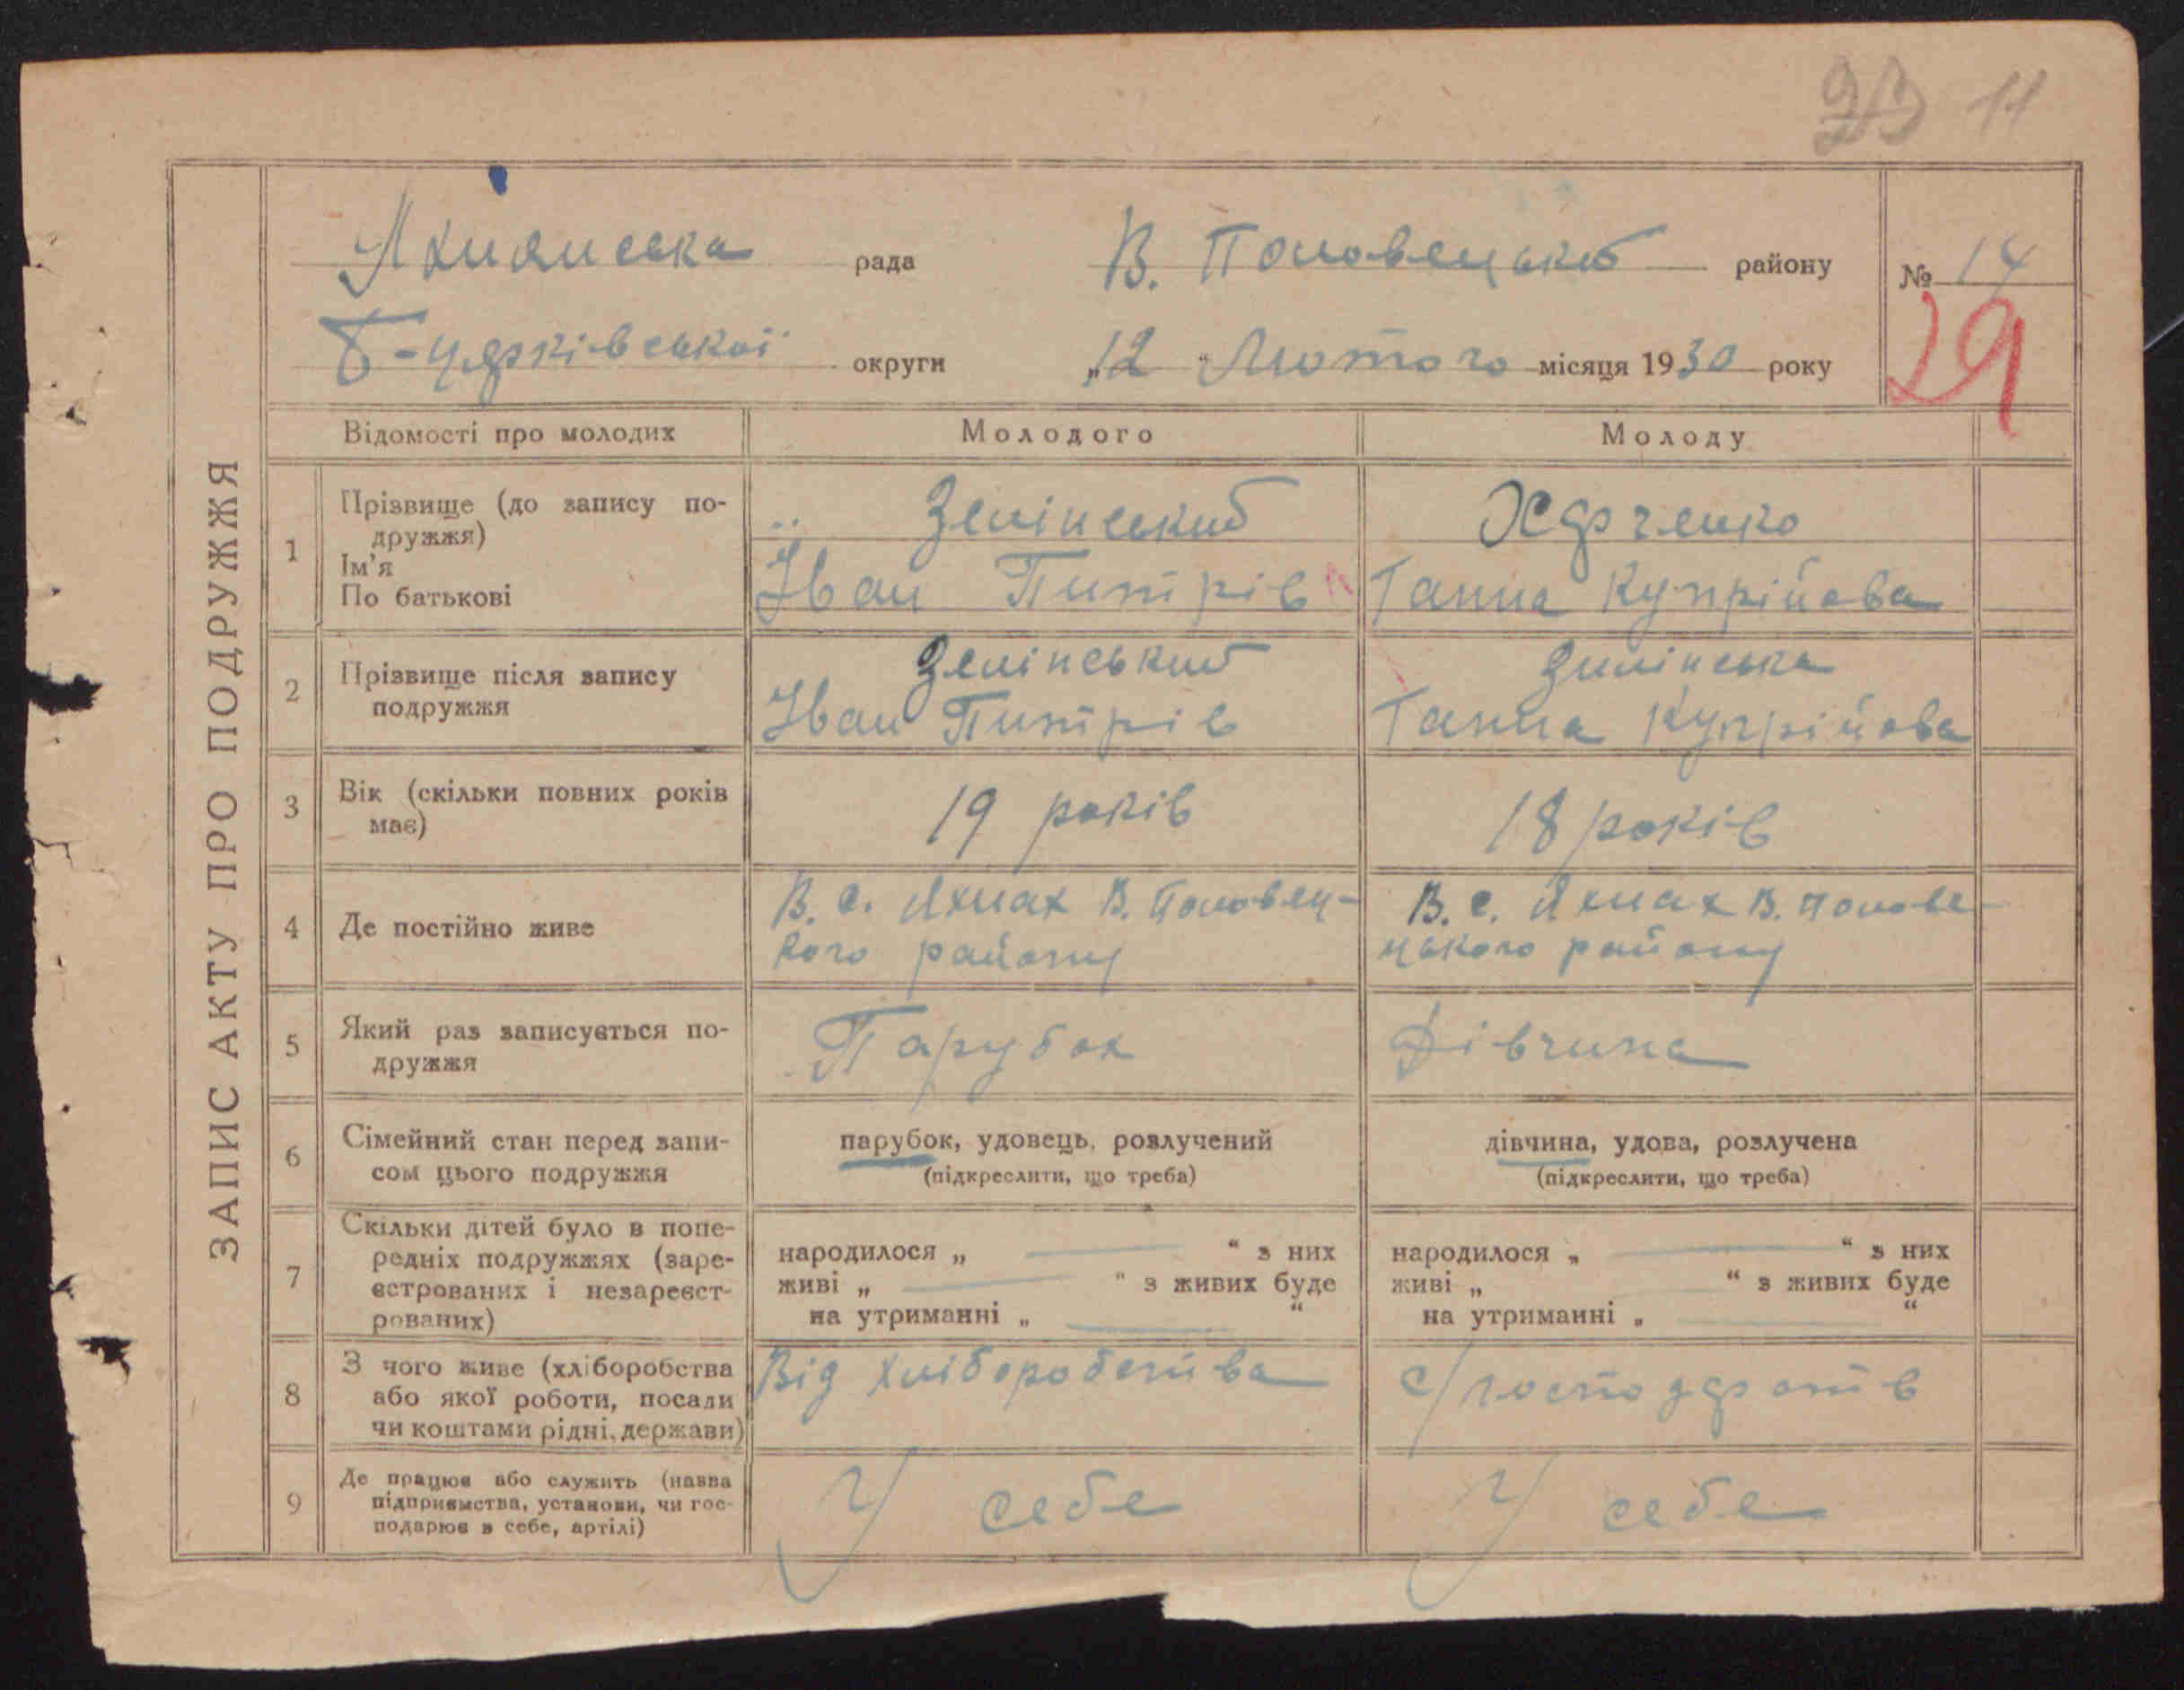 11
рада В. Половецький району № 14
Б-Церківської округи „12" Лютого місяця 1930 року
29
ЗАПИС АКТУ ПРО ПОДРУЖЖЯ
Відомості про молодих Молодого Молоду
1 Прізвище (до запису по-
дружжя)
Ім'я
По батькові
Зелінський
Іван Питрів
Харченко
Ганна Купрійова
2 Прізвище після запису
подружжя
Зелінський
Іван Питрів
Зилінська
Ганна Купрійова
3 Вік (скільки повних років
має)
19 років
18 років
4 Де постійно живе
В. с. Яхнах В. Половец-
кого району
В. с. Яхнах В. Полове-
цького району
5 Який раз записується по-
дружжя
Парубок
Дівчина
6 Сімейний стан перед запи-
сом цього подружжя
парубок, удовець, розлучений
(підкреслити, що треба)
дівчина, удова, розлучена
(підкреслити, що треба)
7 Скільки дітей було в попе-
редніх подружжях (заре-
єстрованих і незареєст-
рованих)
народилося „ “ з них
живі „ “ з живих буде
на утриманні „ “
народилося „ “ з них
живі „ “ з живих буде
на утриманні „ “
8 З чого живе (хліборобства
або якої роботи, посади
чи коштами рідні, держави)
Від хліборобства
с/господарств
9 Де працює або служить (назва
підприємства, установи, чи гос-
подарює в себе, артілі)
У себе
У себе